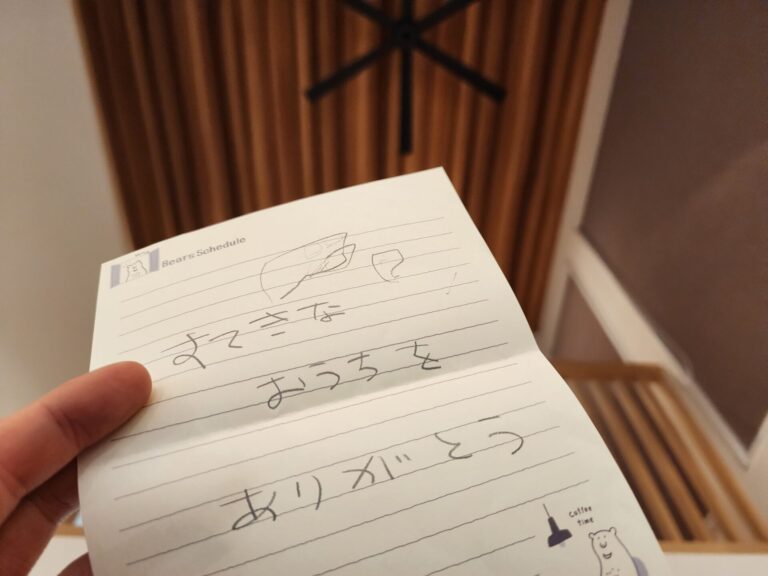 Bears Schedule
すてきな
おうちを
ありがとう
coffee
time